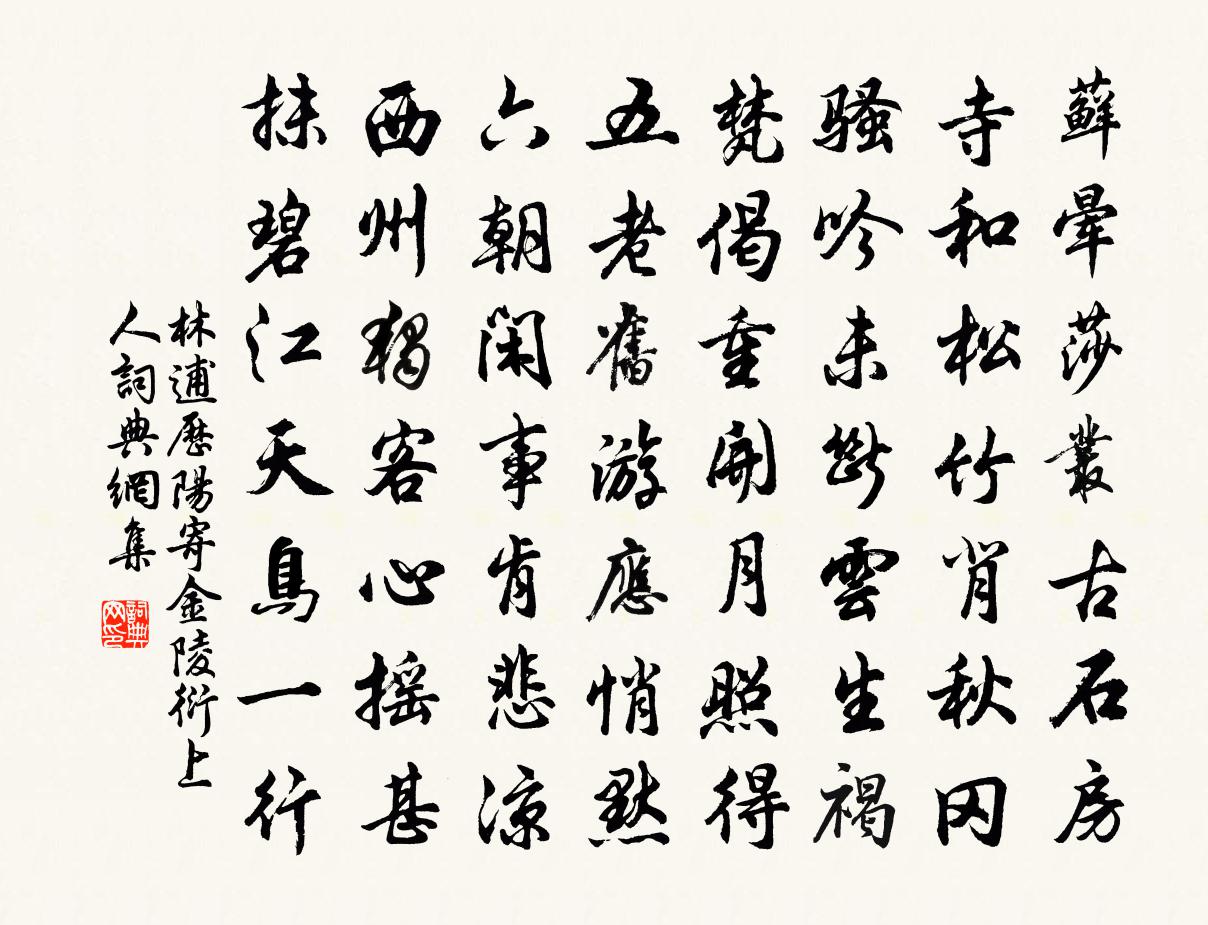 蘚暈莎叢古石房
寺和松竹肖秋冈
騷吟未断雲生褐
梵偈重開月照得
五老舊游應悄黙
六朝闲事肯悲凉
西州独客心摇甚
抹碧江天鳥一行
林逋歷陽寄金陵衍上
人詞典網集
詞典
网印